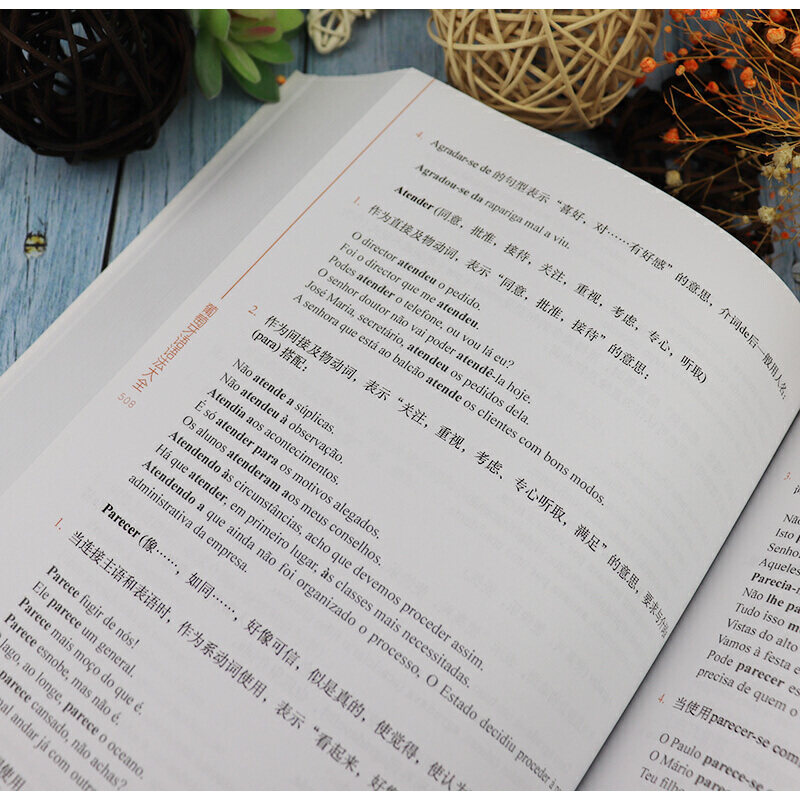 4. Agradar-se de 的句型表示“喜好，对……有好感”的意思，介词de后一般用人名：
Agradou-se da rapariga mal a viu.
Atender (同意，批准，接待，关注，重视，考虑，专心，听取)
1. 作为直接及物动词，表示“同意，批准，接待”的意思：
O director atendeu o pedido.
Foi o director que me atendeu.
Podes atender o telefone, ou vou lá eu?
O senhor doutor não vai poder atendê-la hoje.
José Maria, secretário, atendeu os pedidos dela.
A senhora que está ao balcão atende os clientes com bons modos.
2. 作为间接及物动词，表示“关注，重视，考虑、专心听取，满足”的意思，要求与介词
(para) 搭配：
Não atende a súplicas.
Não atendeu à observação.
Atendia aos acontecimentos.
É só atender para os motivos alegados.
Os alunos atenderam aos meus conselhos.
Atendendo às circunstâncias, acho que devemos proceder assim.
Há que atender, em primeiro lugar, às classes mais necessitadas.
Atendendo a que ainda não foi organizado o processo, O Estado decidiu proceder à
administrativa da empresa.
Parecer (像……，如同……，好像可信，似是真的，使觉得，使认为
1. 当连接主语和表语时，作为系动词使用，表示“看起来，好像
Parece fugir de nós!
Ele parece um general.
Parece mais moço do que é.
Parece esnobe, mas não é.
lago, ao longe, parece o oceano.
parece cansado, não achas?
al andar já com outro
使用
葡萄牙语语法大全
508
3.
Não
Isto
Senho
Aqueles
Parecia-
Não lhe
Tudo isso
Vistas do alto
Vamos à festa
Pode parecer es
precisa de quem o
4. 当使用parecer-se com
O Paulo parece-se
O Mário parece-se
Teu filho